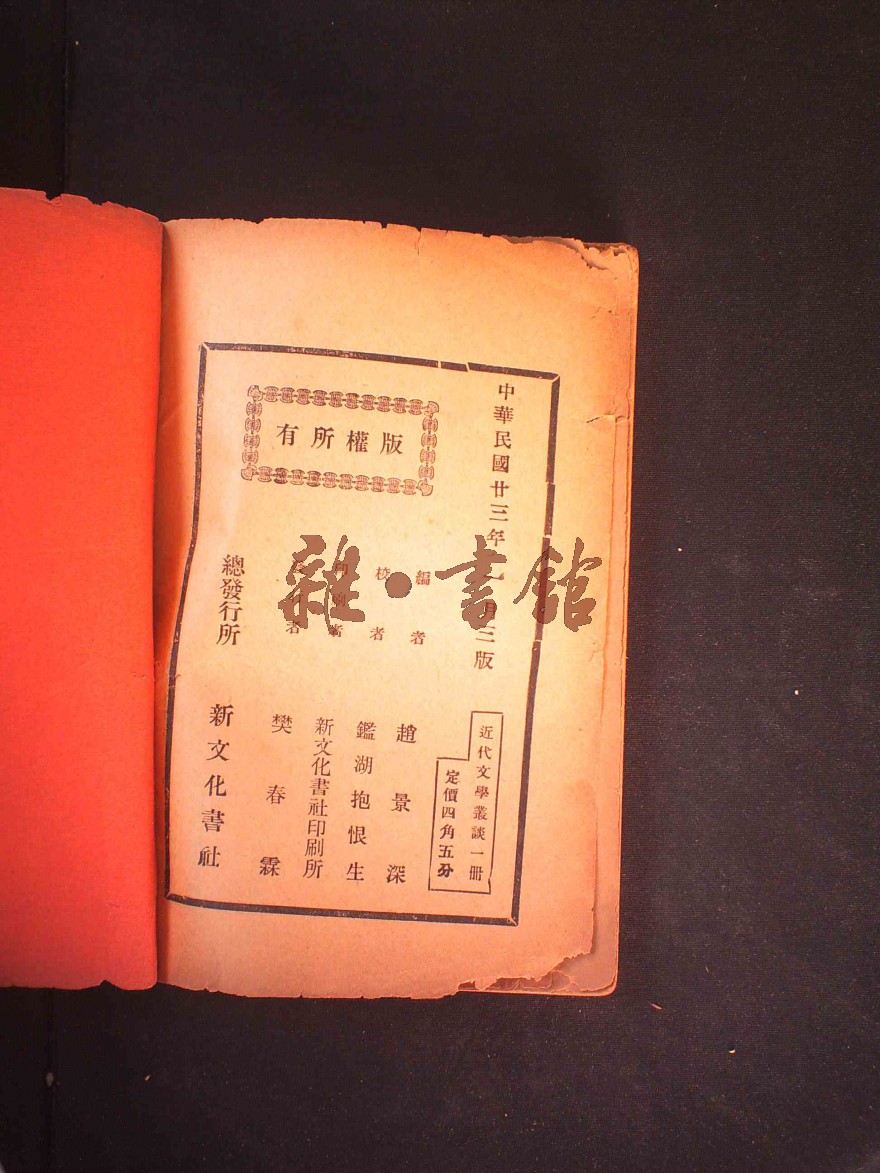 中華民國廿三年九月三版
近代文學叢談一冊
定價四角五分
編者 趙景深
校者 鑑湖抱恨生
印刷者 新文化書社印刷所
發行者 樊春霖
總發行所 新文化書社
版權所有
雜·書館